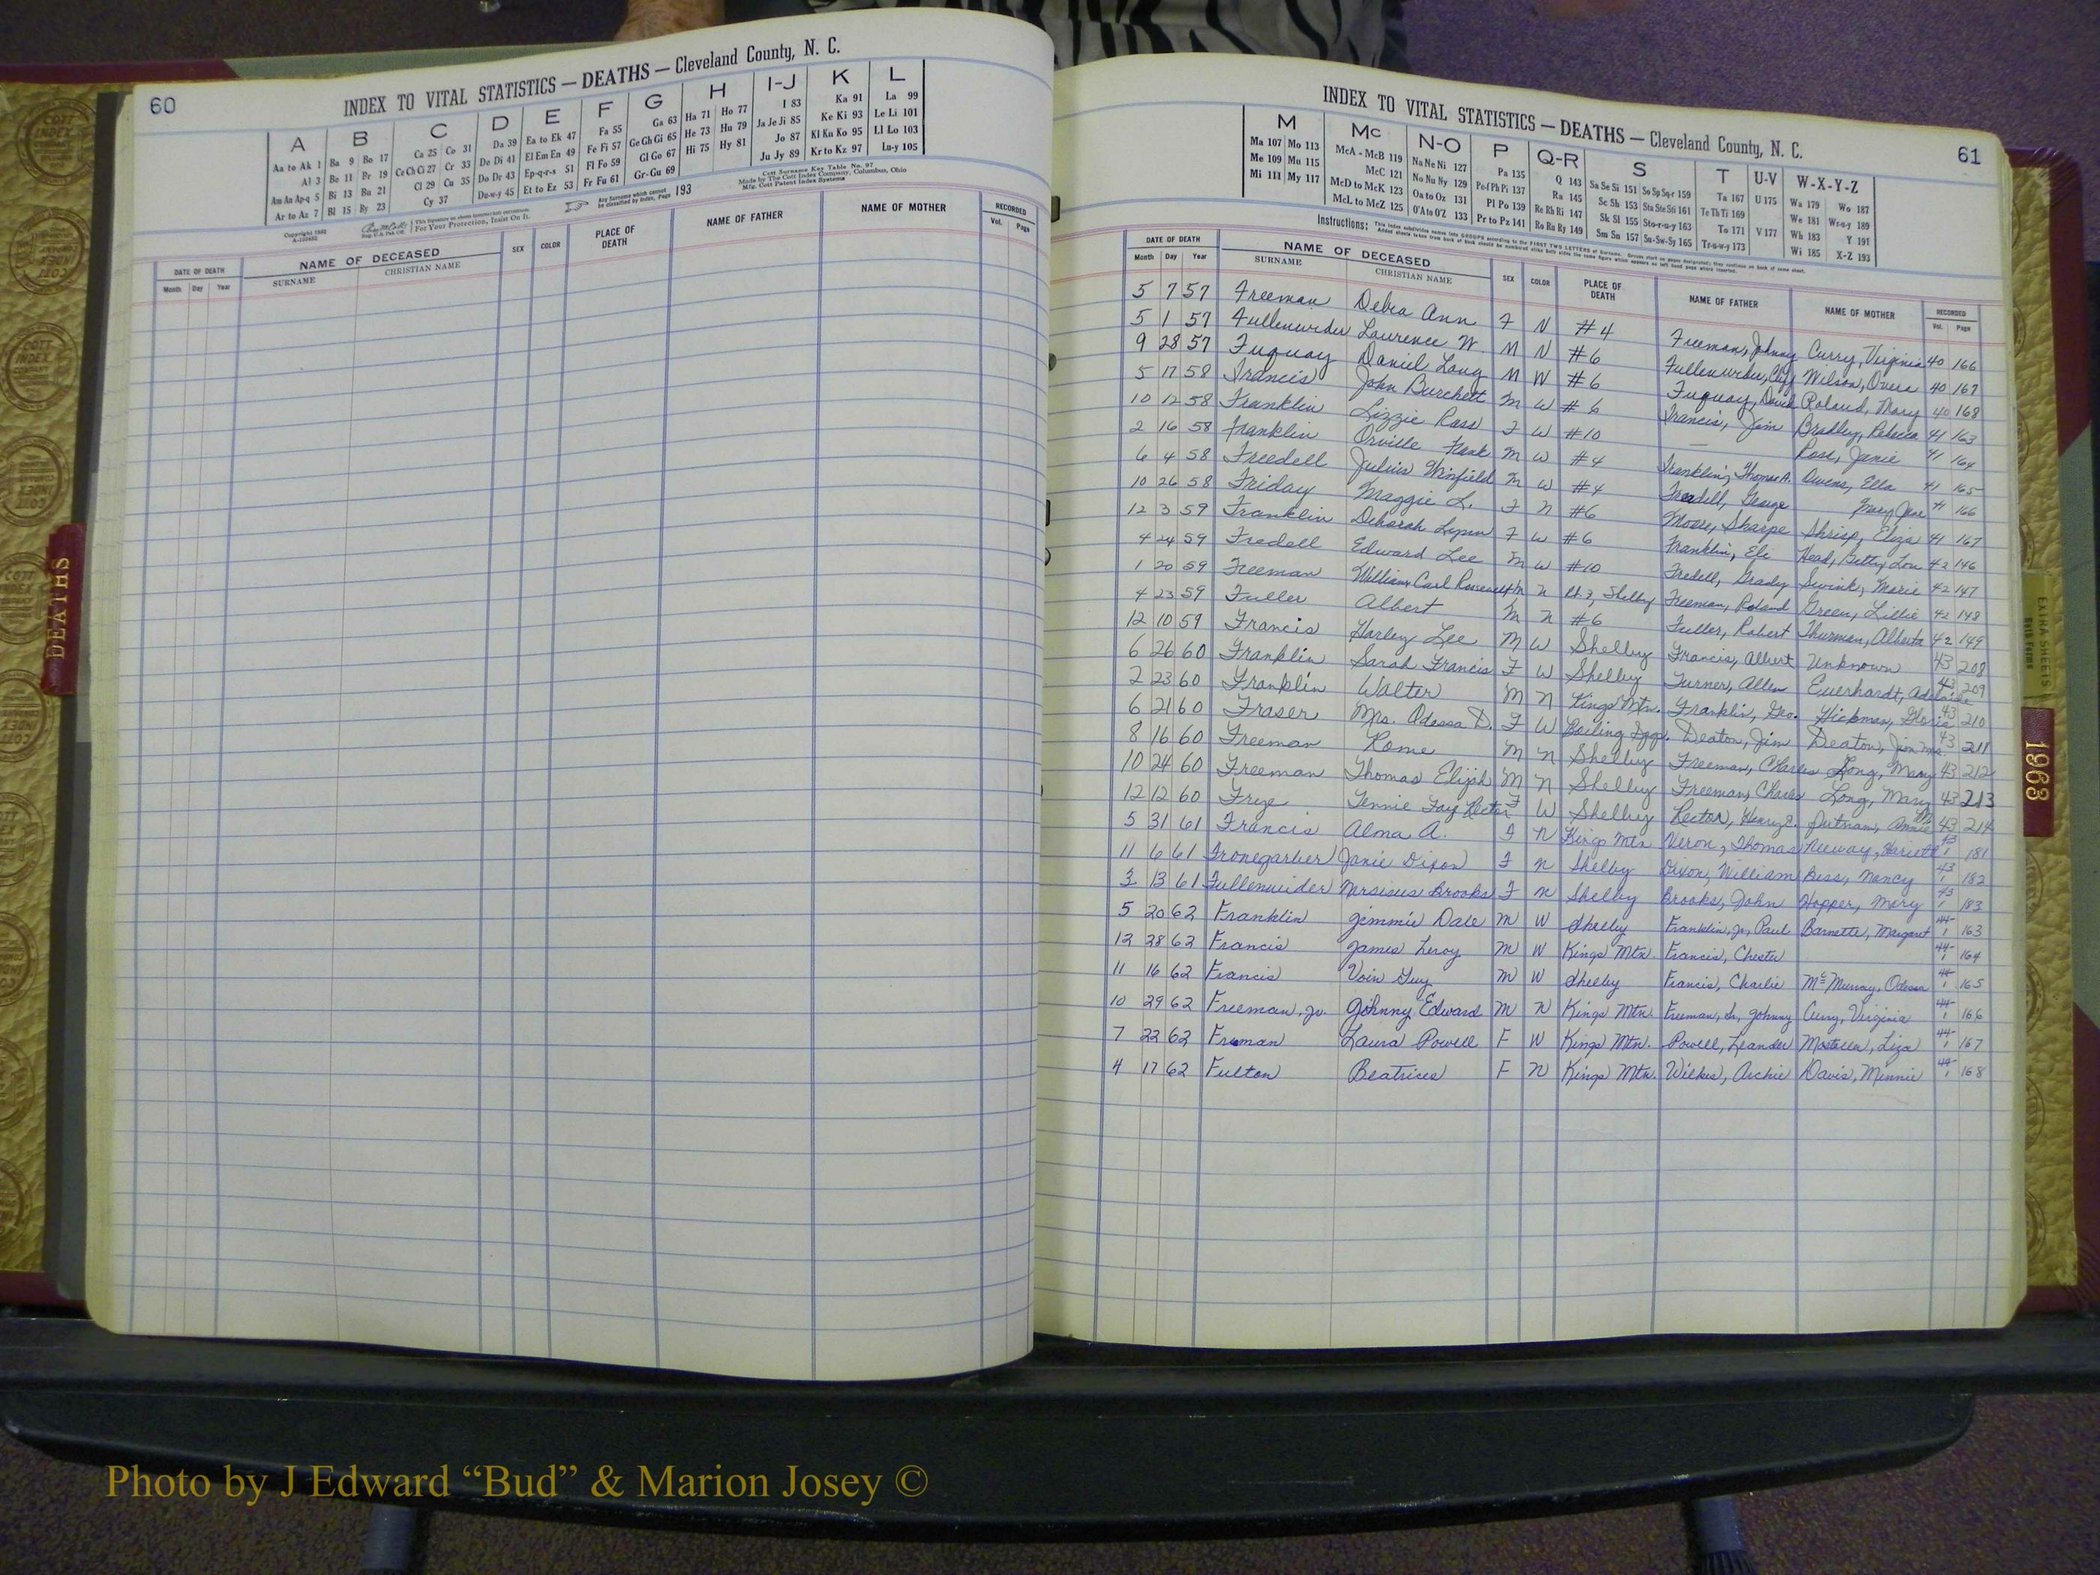 60
INDEX TO VITAL STATISTICS — DEATHS — Cleveland County, N. C.
A B C D E F G H I-J K L
Aa to Ak 1 Ba 9 Bo 17 Ca 25 Co 31 Da 39 Ea to Ek 47 Fa 55 Ga 63 Ha 71 Ho 77 I 83 Ka 91 La 99
Al 3 Be 11 Br 19 Ce Ch Ci 27 Cr 33 De Di 41 El Em En 49 Fe Fi 57 Ge Gh Gi 65 He 73 Hu 79 Ja Je Ji 85 Ke Ki 93 Le Li 101
Am An Ap-q 5 Bi 13 Bu 21 Cl 29 Cu 35 Do Dr 43 Ep-q-r-s 51 Fl Fo 59 Gl Go 67 Hi 75 Hy 81 Jo 87 Kl Kn Ko 95 Ll Lo 103
Ar to Az 7 Bl 15 By 23 Cy 37 Du-w-y 45 Et to Ez 53 Fr Fu 61 Gr-Gu 69 Ju Jy 89 Kr to Kz 97 Lu-y 105
Any Surname which cannot be classified by Index, Page 193
Cott Surname Key Table No. 97
Made by The Cott Index Company, Columbus, Ohio
Mfg. Cott Patent Index Systems
For Your Protection, Insist On It.
DATE OF DEATH NAME OF DECEASED SEX COLOR PLACE OF DEATH NAME OF FATHER NAME OF MOTHER RECORDED
Month Day Year SURNAME CHRISTIAN NAME Vol. Page
DEATHS
INDEX TO VITAL STATISTICS — DEATHS — Cleveland County, N. C.
61
M Mc N-O P Q-R S T U-V W-X-Y-Z
Ma 107 Mo 113 McA - McB 119 Na Ne Ni 127 Pa 135 Q 143 Sa Se Si 151 So Sp Sq-r 159 Ta 167 U 175 Wa 179 Wo 187
Me 109 Mu 115 McC 121 No Nu Ny 129 Pe-f Ph Pi 137 Ra 145 Sc Sh 153 Sta Ste Sti 161 Te Th Ti 169 We 181 Wr-u-y 189
Mi 111 My 117 McD to McK 123 Oa to Oz 131 Pl Po 139 Re Rh Ri 147 Sk Sl 155 Sto-r-u-y 163 To 171 V 177 Wh 183 Y 191
McL to McZ 125 O'A to O'Z 133 Pr to Pz 141 Ro Ru Ry 149 Sm Sn 157 Su-Sw-Sy 165 Tr-u-w-y 173 Wi 185 X-Z 193
DATE OF DEATH NAME OF DECEASED SEX COLOR PLACE OF DEATH NAME OF FATHER NAME OF MOTHER RECORDED
Month Day Year SURNAME CHRISTIAN NAME Vol. Page
5 7 57 Freeman Debra Ann F N #4 Freeman, Johnny Curry, Virginia 40 166
5 1 57 Fullenwider Laurence W. M N #6 Fullenwider, Wilson, Overa 40 167
9 28 57 Fuquay Daniel Long M W #6 Fuquay, David Roland, Mary 40 168
5 17 58 Francis John Burchett M W #6 Francis, Jim Bradley, Rebecca 41 163
10 12 58 Franklin Lizzie Ross F W #10 — Ross, Janie 41 164
2 16 58 Franklin Orville Frank M W #4 Franklin, Thomas A. Owens, Ella 41 165
6 4 58 Freedell Julius Winfield M W #4 Freedell, George Mary Jane 41 166
10 26 58 Friday Maggie L. F N #6 Moore, Sharpe Shrisp, Eliza 41 167
12 3 59 Franklin Deborah Lynn F W #6 Franklin, Ele Head, Betty Lou 42 146
4 24 59 Fredell Edward Lee M W #10 Fredell, Grady Swink, Marie 42 147
1 20 59 Freeman William Carl Roosevelt M N Rt. 3, Shelby Freeman, Roland Green, Lillie 42 148
4 23 59 Fuller Albert M N #6 Fuller, Robert Thurman, Alberta 42 149
12 10 59 Francis Harley Lee M W Shelby Francis, Albert Unknown 43 208
6 26 60 Franklin Sarah Francis F W Shelby Turner, Allen Everhardt, Adelaide 43 209
2 23 60 Franklin Walter M N Kings Mtn. Franklin, Geo. Hickman, Gloria 43 210
6 21 60 Fraser Mrs. Odessa D. F W Boiling Spgs. Deaton, Jim Deaton, Jim Mrs. 43 211
8 16 60 Freeman Rome M N Shelby Freeman, Charles Long, Mary 43 212
10 24 60 Freeman Thomas Elijah M N Shelby Freeman, Charles Long, Mary 43 213
12 12 60 Frye Tennie Fay Rector F W Shelby Rector, Henry E. Putnam, Annie 43 214
5 31 61 Francis Alma A. F N Kings Mtn Neron, Thomas Neeway, Hariette 43 181
11 6 61 Fronegarber Janie Dixon F N Shelby Dixon, William Bess, Nancy 43 182
3 13 61 Fullenwider Narsisus Brooks F N Shelby Brooks, John Hopper, Mary 43 183
5 20 62 Franklin Jimmie Dale M W Shelby Franklin, Jr, Paul Barnette, Margaret 44-1 163
12 28 62 Francis James Leroy M W Kings Mtn. Francis, Chester 44-1 164
11 16 62 Francis Voin Guy M W Shelby Francis, Charlie McMurray, Odessa 44-1 165
10 29 62 Freeman, Jr. Johnny Edward M N Kings Mtn. Freeman, Sr, Johnny Curry, Virginia 44-1 166
7 22 62 Freman Laura Powell F W Kings Mtn. Powell, Leander Mosteller, Liza 44-1 167
4 17 62 Fulton Beatrice F N Kings Mtn. Wilkes, Archie Davis, Minnie 44-1 168
EXTRA SHEETS
1963
Photo by J Edward “Bud” & Marion Josey ©